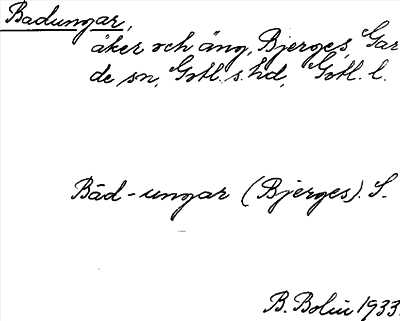 Badungar,
åker och äng, Bjerges, Gar
de sn, Gotl. s. hd, Gotl. l.
Båd-ungar (Bjerges). S.
B. Bolin 1933.